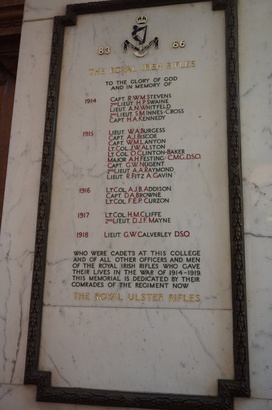 83 86
THE ROYAL IRISH RIFLES
TO THE GLORY OF GOD
AND IN MEMORY OF
1914 CAPT. R.W.M. STEVENS
2ND LIEUT. H.P. SWAINE
LIEUT. A.N. WHITFELD
2ND LIEUT. S. M INNES-CROSS
CAPT. H.A. KENNEDY
1915 LIEUT. W.A. BURGESS
CAPT. A.J. BISCOE
CAPT. W.M. LANYON
LT. COL. J.W. ALSTON
LT. COL. O. CLINTON-BAKER
MAJOR A.H. FESTING. C.M.G. D.S.O.
CAPT. G.W. NUGENT
2ND LIEUT. A.A. RAYMOND
LIEUT. R. FITZ A. GAVIN
1916 LT. COL. A.J.B. ADDISON
CAPT. D.A. BROWNE
LT. COL. F.E.P. CURZON
1917 LT. COL. H.M. CLIFFE
2ND LIEUT. D.J.F. MAYNE
1918 LIEUT. G.W. CALVERLEY D.S.O.
WHO WERE CADETS AT THIS COLLEGE
AND OF ALL OTHER OFFICERS AND MEN
OF THE ROYAL IRISH RIFLES WHO GAVE
THEIR LIVES IN THE WAR OF 1914-1919.
THIS MEMORIAL IS DEDICATED BY THEIR
COMRADES OF THE REGIMENT NOW
THE ROYAL ULSTER RIFLES